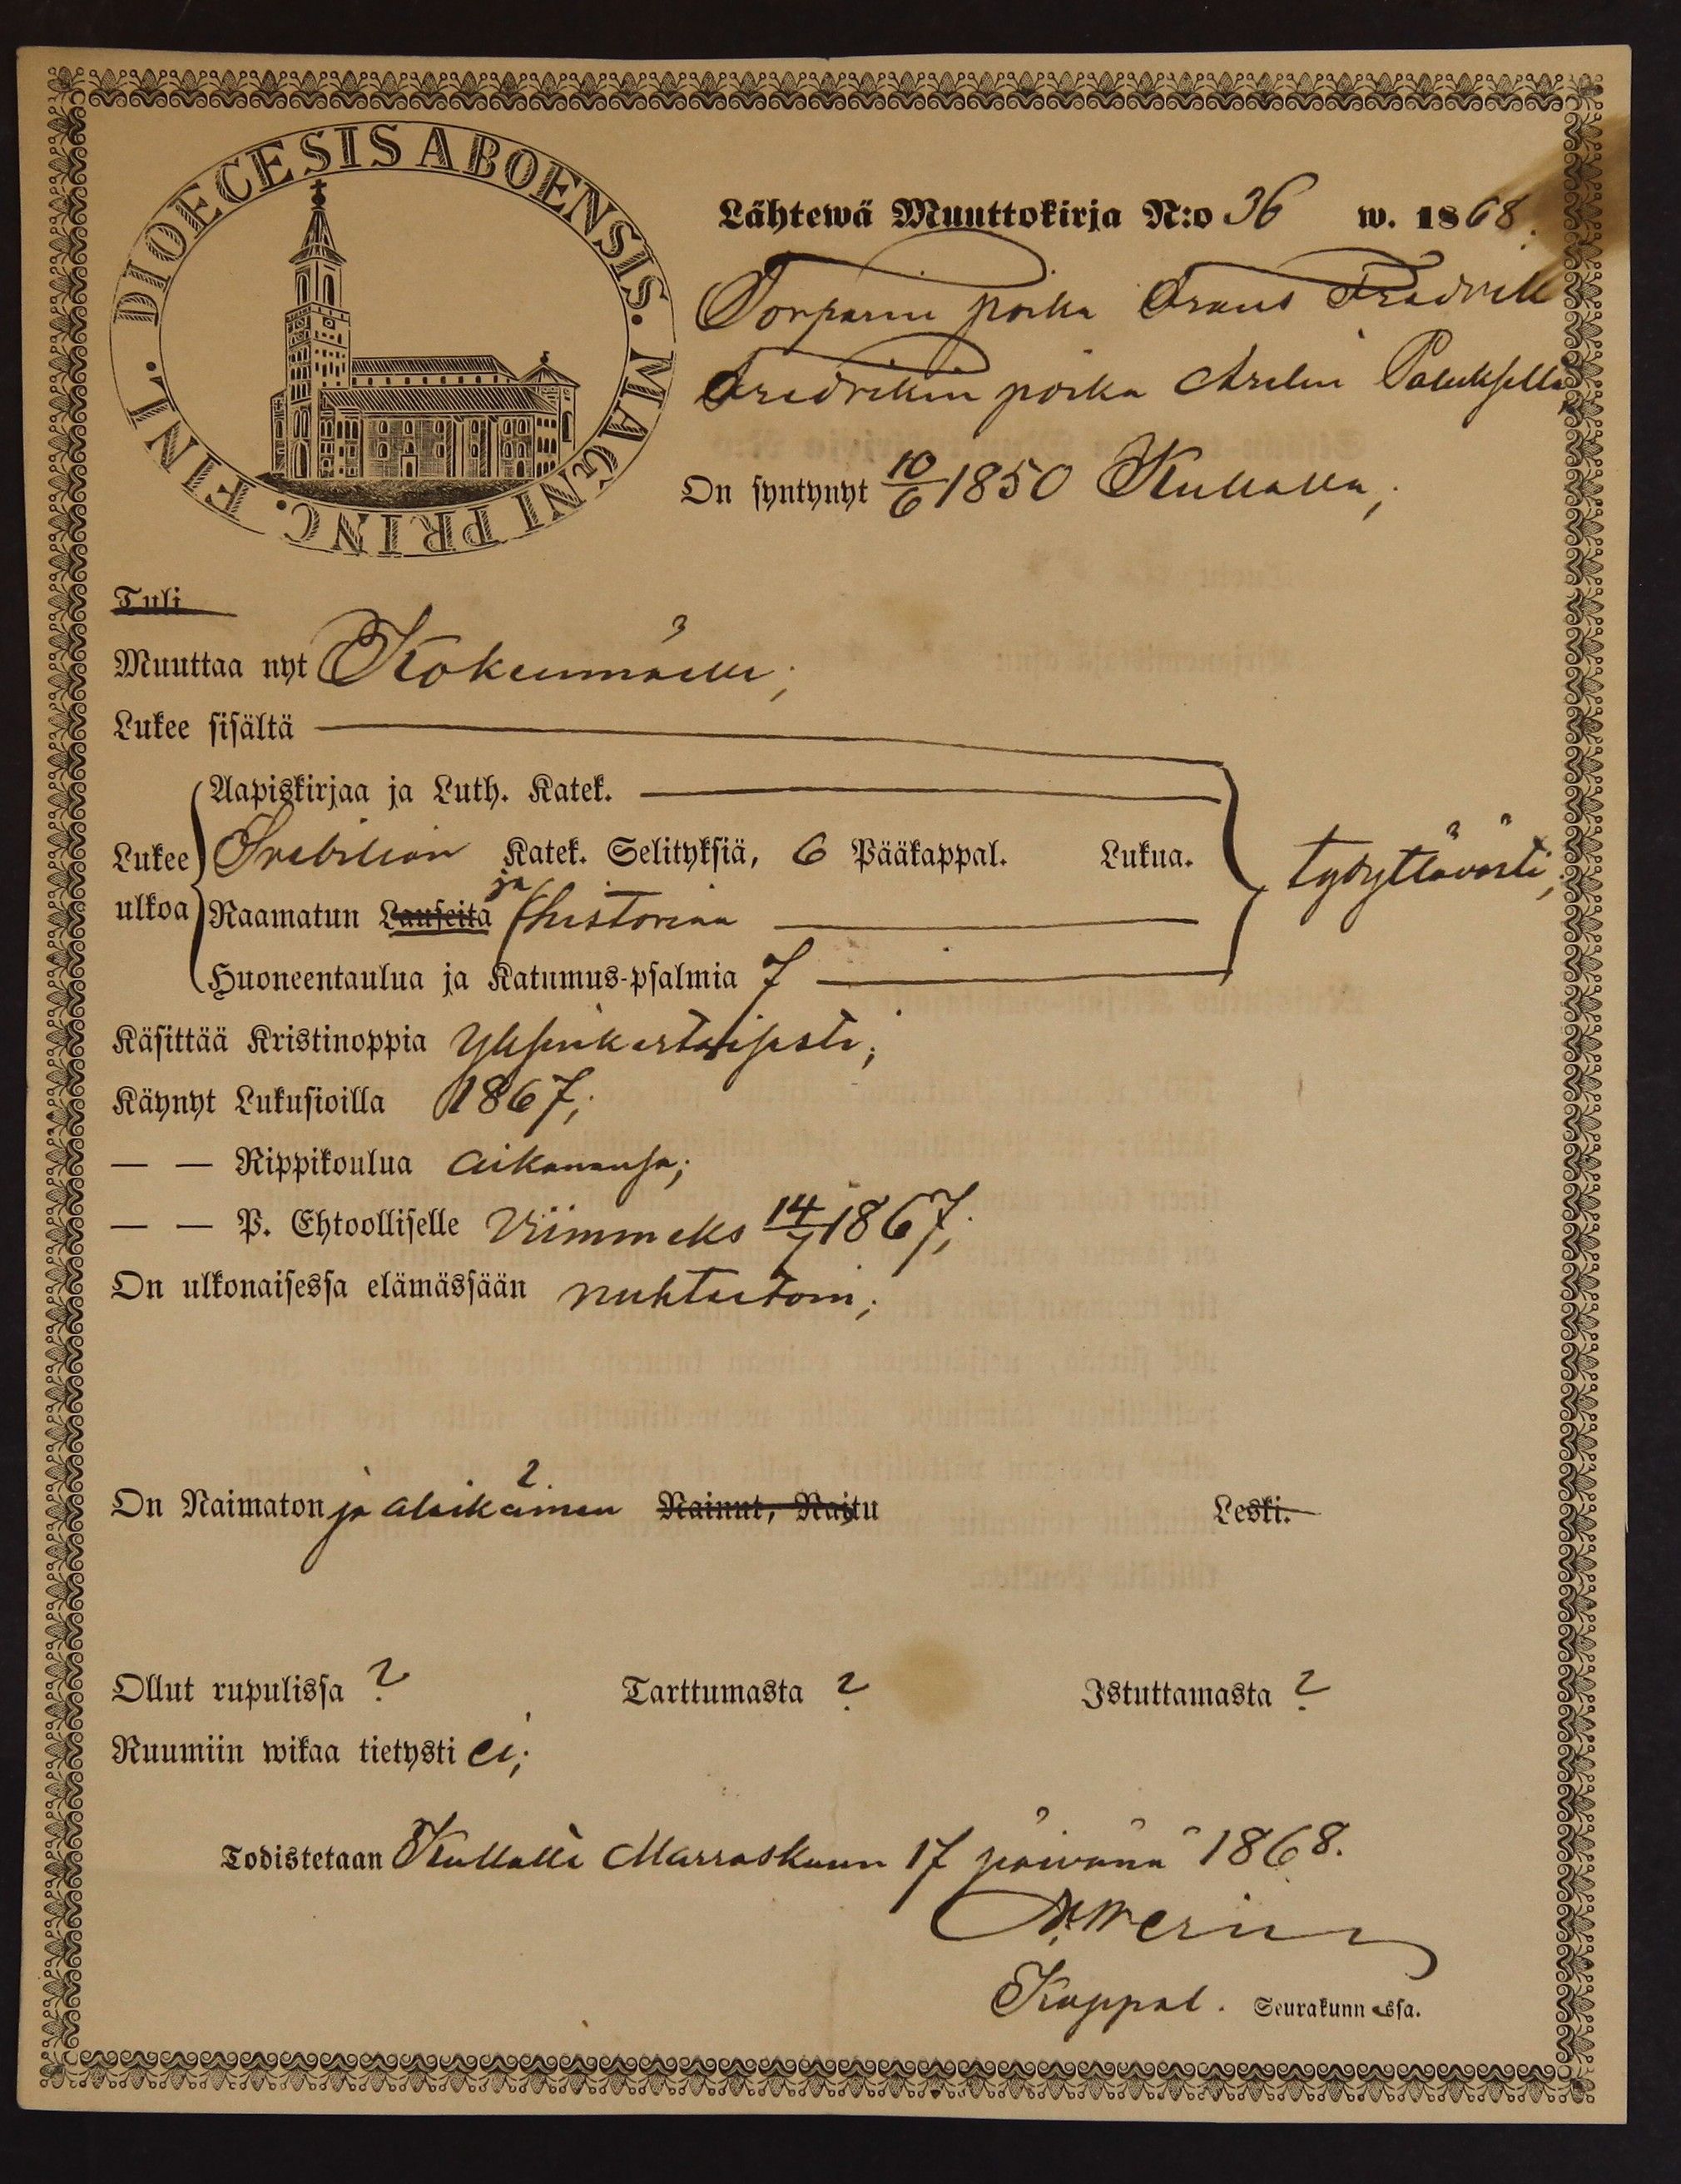 DIOECESIS ABOENSIS. MAGNI PRINC. FINL.
Lähtewä Muuttokirja N:o 36 w. 1868.
Torparin poika Frans Fredrik
Fredrikin poika Arelin Paluksella,
On syntynyt 10/6 1850 Kullalla;
Tuli
Muuttaa nyt Kokeumäelle;
Lukee sisältä
Aapiskirjaa ja Luth. Katek.
Lukee ulkoa Svebiliön Katek. Selityksiä, 6 Pääkappal. Lukua. tydyttävästi;
Raamatun Lauseita ja historiaa
Huoneentaulua ja Katumus-psalmia 7
Käsittää Kristinoppia Yksinkertaisesti;
Käynyt Lukusioilla 1867;
— — Rippikoulua aikanansa;
— — P. Ehtoolliselle Viimmeks 14/7 1867;
On ulkonaisessa elämässään nuhteetoin;
On Naimaton ja alaikäinen Nainut, Naitu Leski.
Ollut rupulissa ? Tarttumasta ? Istuttamasta ?
Ruumiin wikaa tietysti ei;
Todistetaan Kullalla Marraskuun 17 päivänä 1868.
Kappal. Seurakunnassa.